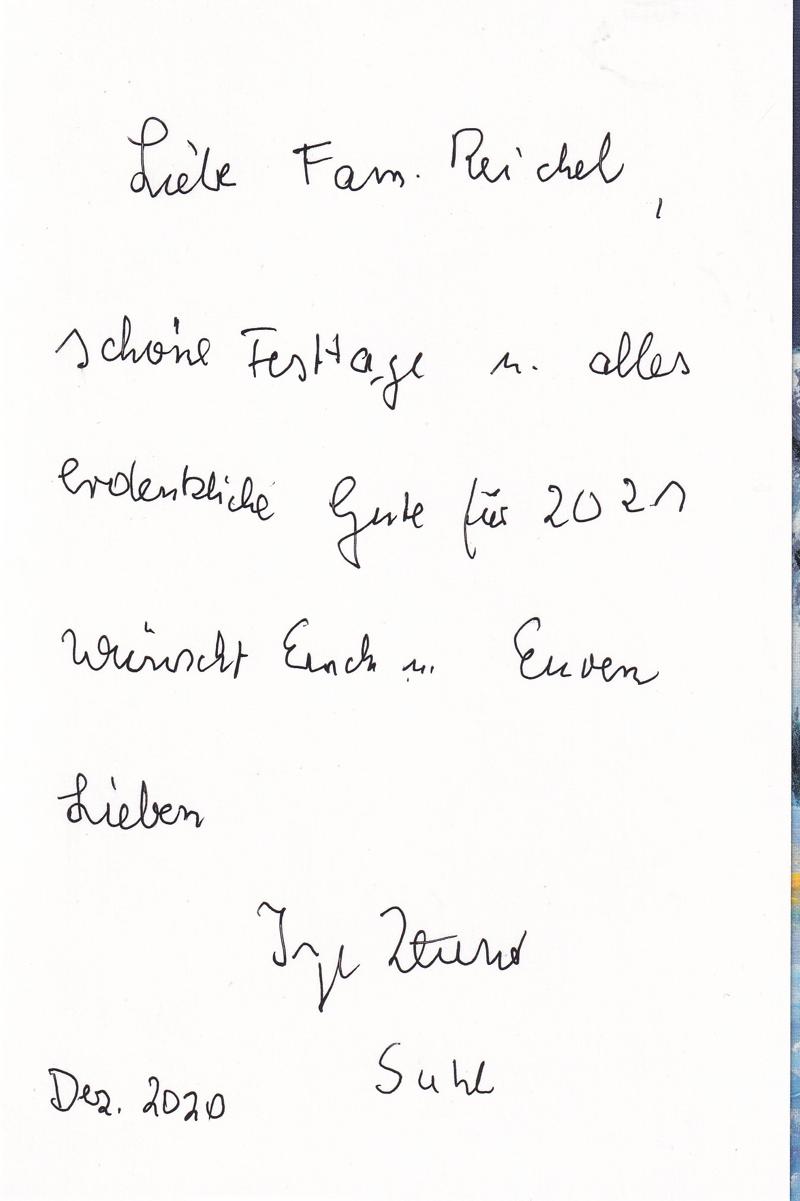 Liebe Fam. Reichel,
schöne Festtage u. alles
erdenkliche Gute für 2021
wünscht Euch u. Euren
Lieben
Inge
Suhl
Dez. 2020